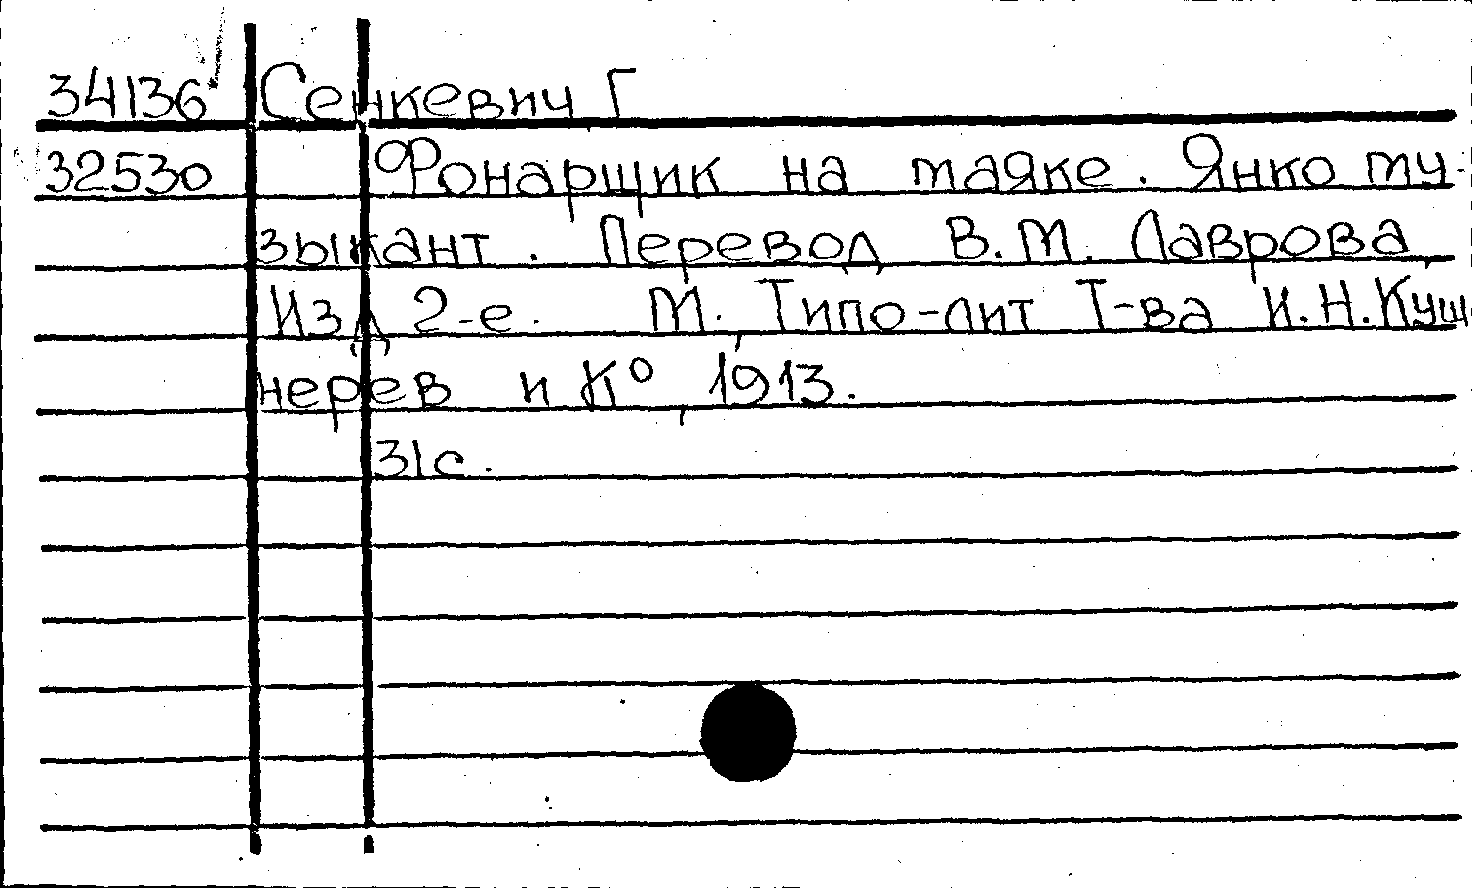 34136 Сенкевич Г
32530 Фонарщик на маяке. Янко му-
зыкант. Перевод В.М. Лаврова
Изд 2-е. М., Типо-лит Т-ва И.Н.Куш
нерев и К°, 1913.
31с.